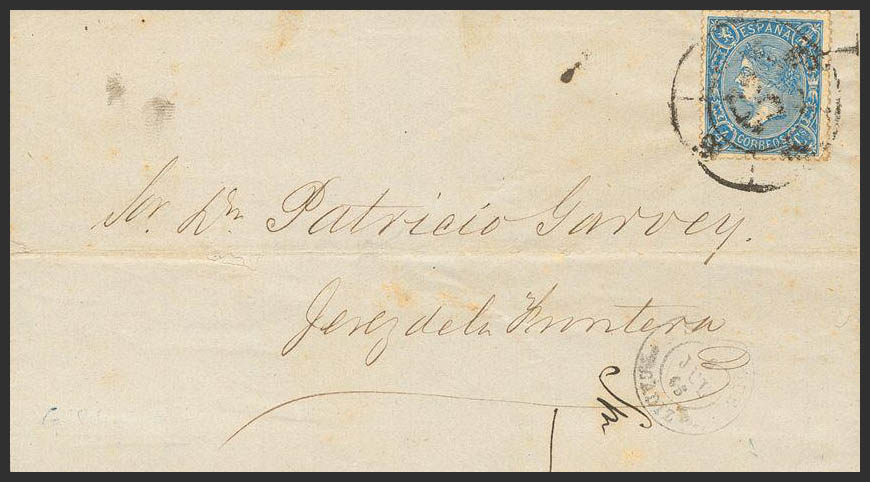 ESPAÑA
CORREOS
Sor. Dn. Patricio Garvey.
Jerez de la Frontera
JUL
65